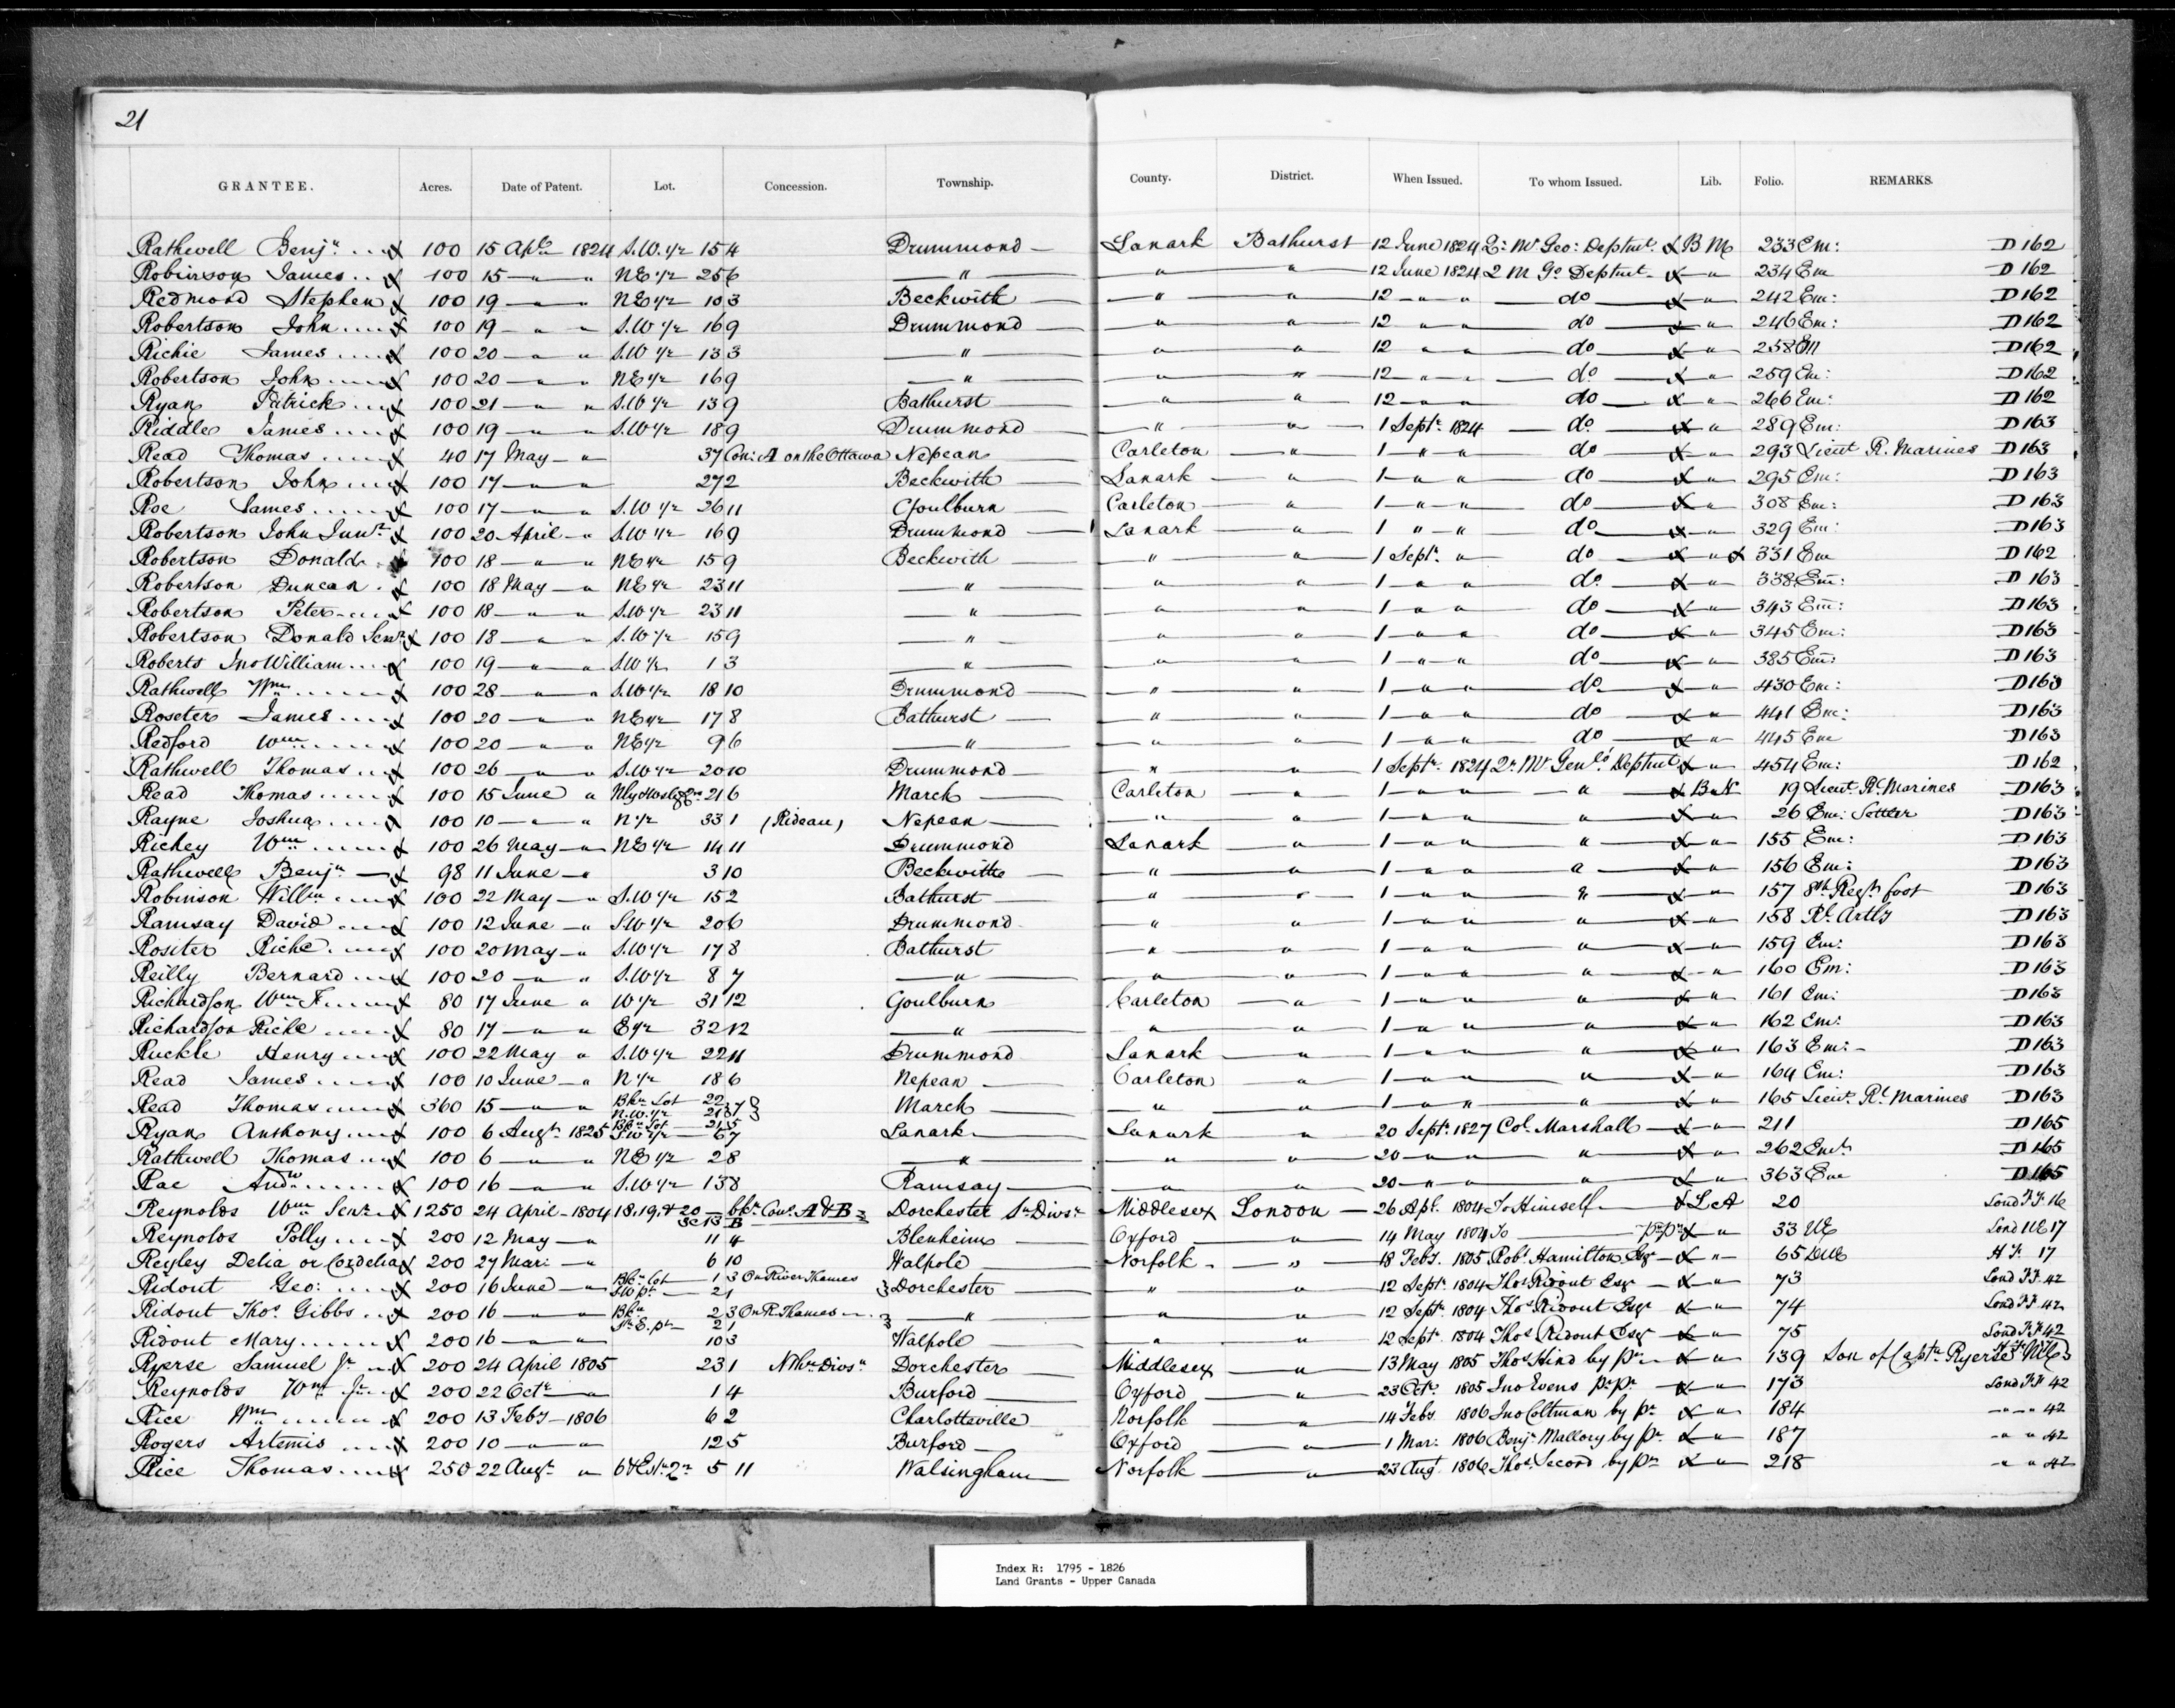 21
GRANTEE. Acres. Date of Patent. Lot. Concession. Township. County. District. When Issued. To whom Issued. Lib. Folio. REMARKS.
Rathwell Benjn 100 15 Apl 1824 S.W. 1/2 15 4 Drummond Lanark Bathurst 12 June 1824 Q: Mr Geo: Deptmt. B M 233 Em: D 162
Robinson James 100 15 " " NE 1/2 25 6 " " " 12 June 1824 Q M Gs Deptmt " 234 Em D 162
Redmond Stephen 100 19 " " NE 1/2 10 3 Beckwith " " 12 " " do " 242 Em: D 162
Robertson John 100 19 " " S.W 1/2 16 9 Drummond " " 12 " " do " 246 Em: D 162
Richie James 100 20 " " S.W 1/2 13 3 " " " 12 " " do " 258 Em D 162
Robertson John 100 20 " " NE 1/2 16 9 " " " 12 " " do " 259 Em: D 162
Ryan Patrick 100 21 " " S.W 1/2 13 9 Bathurst " " 12 " " do " 266 Em: D 162
Riddle James 100 19 " " S.W 1/2 18 9 Drummond " " 1 Septr. 1824 do " 289 Em: D 163
Read Thomas 40 17 May " 37 Con: A on the Ottawa Nepean Carleton " 1 " " do " 293 Lieut R. Marines D 163
Robertson John 100 17 " " 27 2 Beckwith Lanark " 1 " " do " 295 Em: D 163
Roe James 100 17 " " S.W 1/2 26 11 Goulburn Carleton " 1 " " do " 308 Em: D 163
Robertson John Junr. 100 20 April " S.W 1/2 16 9 Drummond Lanark " 1 " " do " 329 Em: D 163
Robertson Donald 100 18 " " NE 1/2 15 9 Beckwith " " 1 Septr. " do " 331 Em D 162
Robertson Duncan 100 18 May " NE 1/2 23 11 " " " 1 " " do " 338 Em: D 163
Robertson Peter 100 18 " " S.W 1/2 23 11 " " " 1 " " do " 343 Em: D 163
Robertson Donald Senr 100 18 " " S.W 1/2 15 9 " " " 1 " " do " 345 Em: D 163
Roberts Jno William 100 19 " " S.W 1/2 1 3 " " " 1 " " do " 385 Em: D 163
Rathwell Wm 100 28 " " S.W 1/2 18 10 Drummond " " 1 " " do " 430 Em: D 163
Roseter James 100 20 " " NE 1/2 17 8 Bathurst " " 1 " " do " 441 Em: D 163
Redford Wm 100 20 " " NE 1/2 9 6 " " " 1 " " do " 445 Em D 163
Rathwell Thomas 100 26 " " S.W 1/2 20 10 Drummond " " 1 Septr. 1824 Qr. Mr Genls Deptmt " 454 Em: D 162
Read Thomas 100 15 June " 21 6 March Carleton " 1 " " " B N 19 Lieut. Rl. Marines D 163
Rayne Joshua 100 10 " " N 1/2 33 1 (Rideau) Nepean " " 1 " " " " 26 Em: Settler D 163
Richey Wm 100 26 May " NE 1/2 14 11 Drummond Lanark " 1 " " " " 155 Em: D 163
Rathwell Benjn 98 11 June " 3 10 Beckwith " " 1 " " " " 156 Em: D 163
Robinson Willm 100 22 May " S.W 1/2 15 2 Bathurst " " 1 " " " " 157 8th Regt. foot D 163
Ramsay David 100 12 June " S.W 1/2 20 6 Drummond " " 1 " " " " 158 Rl. Artly D 163
Rositer Richd 100 20 May " S.W 1/2 17 8 Bathurst " " 1 " " " " 159 Em: D 163
Reilly Bernard 100 20 " " S.W 1/2 8 7 " " " 1 " " " " 160 Em: D 163
Richardson Wm F. 80 17 June " W 1/2 31 12 Goulburn Carleton " 1 " " " " 161 Em: D 163
Richardson Richd 80 17 " " E 1/2 32 12 " " " 1 " " " " 162 Em: D 163
Ruckle Henry 100 22 May " S.W 1/2 22 11 Drummond Lanark " 1 " " " " 163 Em: D 163
Read James 100 10 June " N 1/2 18 6 Nepean Carleton " 1 " " " " 164 Em: D 163
Read Thomas 360 15 " " Bkn Lot 22 7 March " " 1 " " " " 165 Lieut. Rl. Marines D 163
N.W. 1/2 21
Bkn Lot 21 5
Ryan Anthony 100 6 Augt. 1825 S.W 1/2 6 7 Lanark Lanark " 20 Septr. 1827 Col. Marshall " 211 D 165
Rathwell Thomas 100 6 " " NE 1/2 2 8 " " " 20 " " " " 262 Emt D 165
Rae Andw 100 16 " " S.W 1/2 13 8 Ramsay " " 20 " " " " 363 Em D 165
Reynolds Wm Senr. 1250 24 April 1804 18.19.& 20 Con. A & B Dorchester Sn Divsn Middlesex London 26 Apl. 1804 To Himself L A 20 Lond F.F. 16
B
Reynolds Polly 200 12 May " 11 4 Blenheim Oxford " 14 May 1804 To pr pr " 33 UE Lond UE 17
Reyley Delia or Cordelia 200 27 Mar: " 6 10 Walpole Norfolk " 18 Feby. 1805 Robt. Hamilton Esqr " 65 DUE H F. 17
Ridout Geo: 200 16 June " Bkn Lot 1 3 On River Thames Dorchester " " 12 Septr. 1804 Thos Ridout Esqr " 73 Lond F.F. 42
2 1
Ridout Thos. Gibbs 200 16 " " Bkn 2 3 On R. Thames " " " 12 Septr. 1804 Thos. Ridout Esqr " 74 Lond F.F. 42
2 1
Ridout Mary 200 16 " " 10 3 Walpole " " 12 Septr. 1804 Thos. Ridout Esqr " 75 Lond F.F. 42
Ryerse Samuel Jr 200 24 April 1805 23 1 Nthn Divsn Dorchester Middlesex " 13 May 1805 Thos. Hind by pr " 139 Son of Captn. Ryerse
Reynolds Wm Jr 200 22 Octr " 1 4 Burford Oxford " 23 Octr. 1805 Jno Evens pr pr " 173 Lond F.F. 42
Rice Wm 200 13 Feby 1806 6 2 Charlotteville Norfolk " 14 Feby. 1806 Jno Coltman by pr " 184 " " 42
Rogers Artemis 200 10 " " 12 5 Burford Oxford " 1 Mar: 1806 Benjn Mallory by pr " 187 " " 42
Rice Thomas 250 22 Augt " 5 11 Walsingham Norfolk " 23 Augt 1806 Thos. Secord by pr " 218 " " 42
Index R: 1795 - 1826
Land Grants - Upper Canada